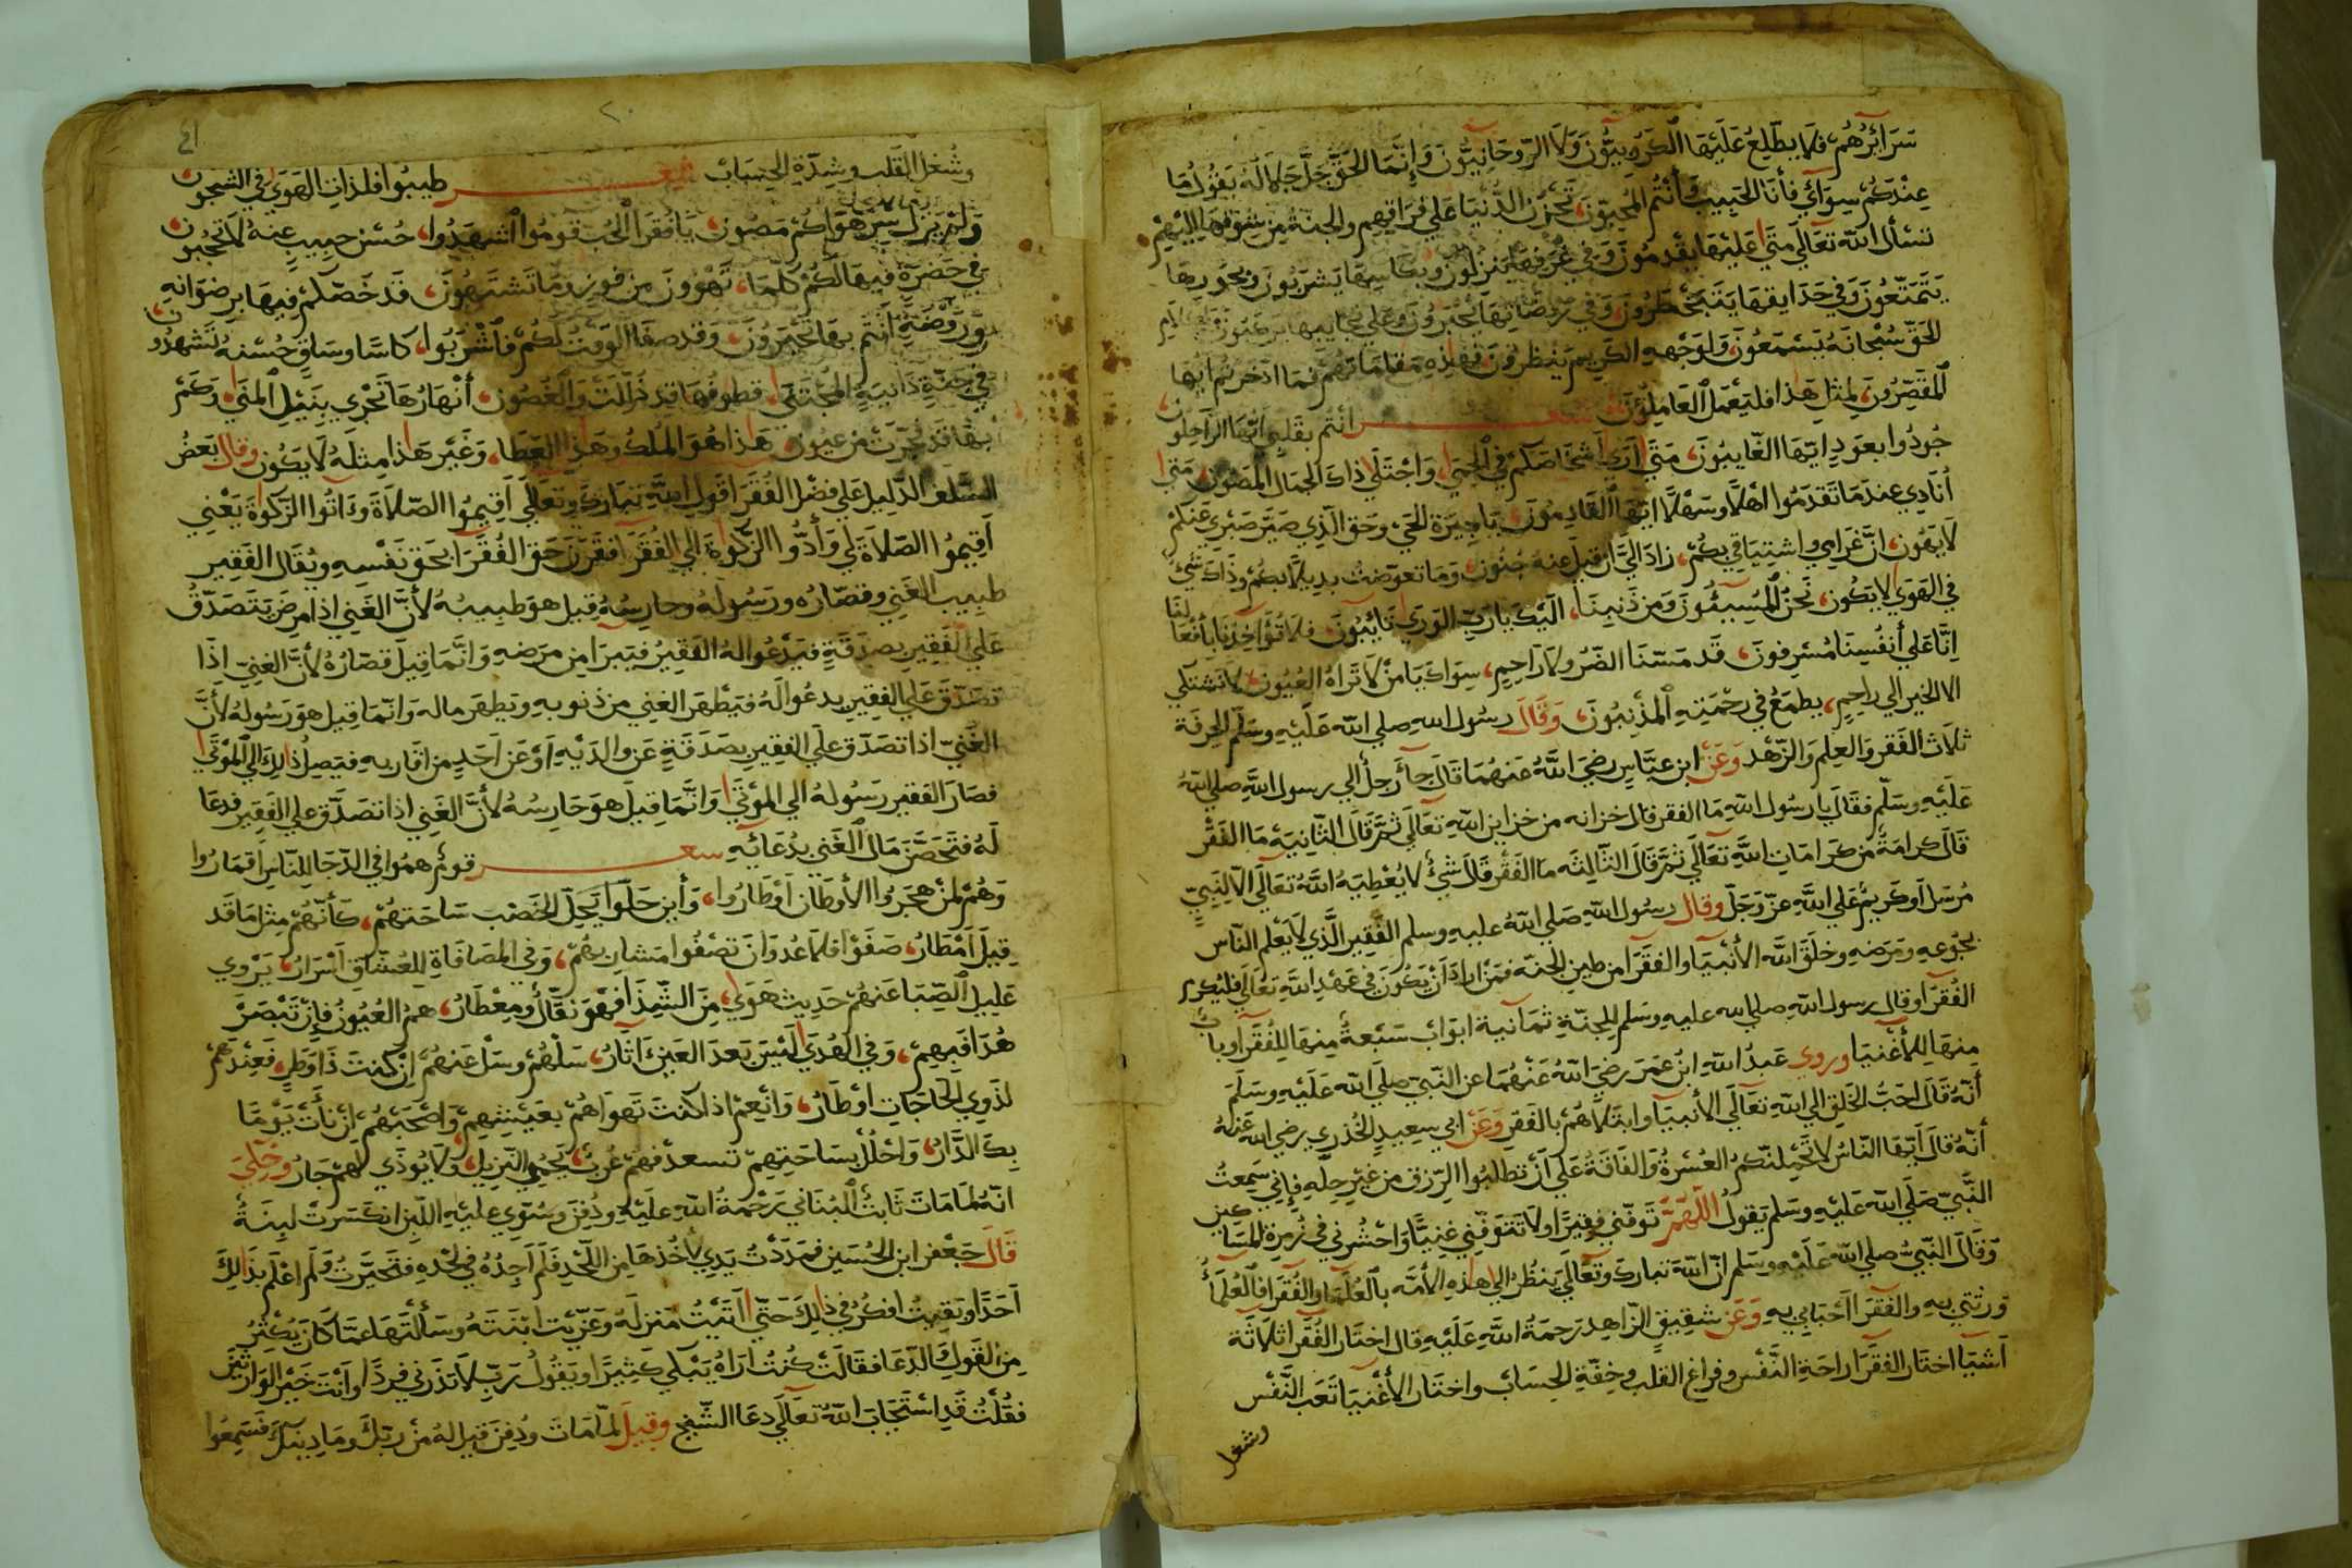 سَرَائِرُهُمْ فَلَا يَطَّلِعُ عَلَيْهَا الْكَرُوبِيُّونَ وَلَا الرُّوحَانِيُّونَ وَإِنَّمَا الْحَقُّ جَلَّ جَلَالُهُ يَقُولُ مَا
عِنْدَكُمْ سِوَائِي فَأَنَا الْحَبِيبُ وَأَنْتُمُ الْمُحِبُّونَ تَحْزَنُ الدُّنْيَا عَلَى فِرَاقِهِمْ وَالْجَنَّةُ مِنْ شَوْقِهَا إِلَيْهِمْ
تَسْأَلُ اللهَ تَعَالَى مَتَى عَلَيْهَا يَقْدَمُونَ وَفِي غُرَفِهَا يَنْزِلُونَ وَبِكَاسِهَا يَشْرَبُونَ وَبِحُورِهَا
يَتَمَتَّعُونَ وَفِي حَدَايِقِهَا يَتَبَخْطَرُونَ وَفِي رَوْضَاتِهَا يُحْبَرُونَ وَعَلَى نَجَايِبِهَا يَرْكَبُونَ
الْحَقِّ سُبْحَانَهُ يَسْتَمِعُونَ وَلِوَجْهِهِ الْكَرِيمِ يَنْظُرُونَ فَهَذِهِ مَقَامَاتُهُمْ فَمَا ادَّخَرْتُمْ أَيُّهَا
الْمُقَصِّرُونَ لِمِثْلِ هَذَا فَلْيَعْمَلِ الْعَامِلُونَ شعر أَنْتُمْ بِقَلْبِي أَيُّهَا الرَّاحِلُونَ
جُودُوا بِعَوْدٍ أَيُّهَا الْغَايِبُونَ مَتَى أَرَى أَشْخَاصَكُمْ فِي الْحِمَى وَاجْتَلِي ذَاكَ الْجَمَالَ الْمَصُونَ مَتَى
أُنَادِي عِنْدَمَا تَقْدَمُوا أَهْلًا وَسَهْلًا أَيُّهَا الْقَادِمُونَ يَا جِيرَةَ الْحَيِّ وَحَقِّ الَّذِي صَيَّرَ صَبْرِي عَنْكُمْ
لَا يَهُونُ إِنَّ غَرَامِي وَاشْتِيَاقِي بِكُمْ زَادَ إِلَى أَنْ قِيلَ عَنْهُ جُنُونٌ وَمَا تَعَوَّضْتُ بَدِيلًا بِكُمْ وَذَاكَ شَيْءٌ
فِي الْهَوَى لَا يَكُونُ نَحْنُ الْمُسِيئُونَ وَمِنْ ذَنْبِنَا إِلَيْكَ يَا رَبَّ الْوَرَى تَائِبُونَ فَلَا تُؤَاخِذْنَا بِأَفْعَالِنَا
إِنَّا عَلَى أَنْفُسِنَا مُسْرِفُونَ قَدْ مَسَّنَا الضُّرُّ وَلَا رَاحِمٌ سِوَاكَ يَا مَنْ لَا تَرَاهُ الْعُيُونُ لَا نَشْتَكِي
إِلَّا الْخَيْرَ إِلَى رَاحِمٍ يَطْمَعُ فِي رَحْمَتِهِ الْمُذْنِبُونَ وَقَالَ رَسُولُ اللهِ صلى الله عَلَيْهِ وَسَلَّمَ الْحِرْفَةُ
ثَلَاثٌ الْفَقْرُ وَالْعِلْمُ وَالزُّهْدُ وَعَنِ ابْنِ عَبَّاسٍ رَضِيَ اللهُ عَنْهُمَا قَالَ جَاءَ رَجُلٌ إِلَى رَسُولِ اللهِ صلى اللهُ
عَلَيْهِ وَسَلَّمَ فَقَالَ يَا رَسُولَ اللهِ مَا الْفَقْرُ قَالَ خِزَانَةٌ مِنْ خَزَايِنِ اللهِ تَعَالَى ثُمَّ قَالَ الثَّانِيَةَ مَا الْفَقْرُ
قَالَ كَرَامَةٌ مِنْ كَرَامَاتِ اللهِ تَعَالَى ثُمَّ قَالَ الثَّالِثَةَ مَا الْفَقْرُ قَالَ شَيْءٌ لَا يُعْطِيهِ اللهُ تَعَالَى إِلَّا لِنَبِيٍّ
مُرْسَلٍ أَوْ كَرِيمٍ عَلَى اللهِ عَزَّ وَجَلَّ وَقَالَ رَسُولُ اللهِ صَلَى اللهُ عليه وسلم الْفَقِيرُ الَّذِي لَا يَعْلَمُ النَّاسُ
بِجُوعِهِ وَمَرَضِهِ وَخَلَقَ اللهُ الْأَنْبِيَا وَالْفُقَرَا مِنْ طِينِ الْجَنَّةِ فَمَنْ أَرَادَ أَنْ يَكُونَ فِي عَهْدِ اللهِ تَعَالَى فَلْيُكْرِمِ
الْفُقَرَا وَقَالَ رَسُولُ اللهِ صلى الله عليه وَسَلَّمَ لِلْجَنَّةِ ثَمَانِيَةُ أَبْوَابٍ سَبْعَةٌ مِنْهَا لِلْفُقَرَا وَبَابٌ
مِنْهَا لِلْأَغْنِيَا وروى عَبْدُ اللهِ ابْنُ عُمَرَ رَضِيَ اللهُ عَنْهُمَا عَنِ النَّبِيِّ صَلَّى اللهُ عَلَيْهِ وَسَلَّمَ
أَنَّهُ قَالَ أَحَبُّ الْخَلْقِ إِلَى اللهِ تَعَالَى الْأَنْبِيَا وَابْتَلَاهُمْ بِالْفَقْرِ وَعَنْ أَبِي سَعِيدٍ الْخُدْرِي رضي الله عَنْهُ
أَنَّهُ قَالَ أَيُّهَا النَّاسُ لَا تَحْمِلَنَّكُمُ الْعُسْرَةُ وَالْفَاقَةُ عَلَى أَنْ تَطْلُبُوا الرِّزْقَ مِنْ غَيْرِ حِلِّهِ فَإِنِّي سَمِعْتُ
النَّبِيَّ صَلَّى اللهُ عَلَيْهِ وَسَلَّمَ يَقُولُ اللَّهُمَّ تَوَفَّنِي فَقِيرًا وَلَا تَتَوَفَّنِي غَنِيًّا وَاحْشُرْنِي فِي زُمْرَةِ الْمَسَاكِينِ
وَقَالَ النَّبِيُّ صلى الله عَلَيْهِ وَسَلَّمَ إِنَّ اللهَ تَبَارَكَ وَتَعَالَى يَنْظُرُ إِلَى هَذِهِ الْأُمَّةِ بِالْعُلَمَا وَالْفُقَرَا فَالْعُلَمَاءُ
وَرَثَتِي وَالْفُقَرَا أَحْبَابِي وَعَنْ شَقِيقٍ الزَّاهِدِ رَحْمَةُ اللهِ عَلَيْهِ قَالَ اخْتَارَ الْفُقَرَا ثَلَاثَةَ
أَشْيَا اخْتَارَ الْفُقَرَا رَاحَةَ النَّفْسِ وَفَرَاغَ الْقَلْبِ وَخِفَّةَ الْحِسَابِ وَاخْتَارَ الْأَغْنِيَا تَعَبَ النَّفْسِ
وشغل
٢٠
٤١
وَشُغْلَ الْقَلْبِ وَشِدَّةَ الْحِسَابِ شعر طِيبُوا فَلَذَّاتُ الْهَوَى فِي الشُّجُونِ
وَلَمْ يَزَلْ سِرُّ هَوَاكُمْ مَصُونْ يَا فُقَرَا الْحُبِّ قُومُوا اشْهَدُوا حُسْنَ حَبِيبٍ عَنْهُ لَا تُحْجَبُونْ
فِي حَضْرَةٍ فِيهَا لَكُمْ كُلَّمَا تَهْوَوْنَ مِنْ فَوْزٍ وَمَا تَشْتَهُونَ قَدْ خَصَّكُمْ فِيهَا بِرِضْوَانِهِ
وَرَوْضَةٍ أَنْتُمْ بِهَا تُحْبَرُونَ وَقَدْ صَفَا الْوَقْتُ لَكُمْ فَاشْرَبُوا كَاسًا وَسَاقٍ حُسْنَهُ تَشْهَدُونَ
فِي جَنَّةٍ دَانِيَةِ الْمُجْتَنَى قُطُوفُهَا قَدْ ذُلِّلَتْ وَالْغُصُونْ أَنْهَارُهَا تَجْرِي بِنَيْلِ الْمُنَى وَكَمْ
بِهَا قَدْ فُجِّرَتْ مِنْ عُيُونْ هَذَا هُوَ الْمُلْكُ وَهَذَا الْعَطَا وَغَيْرُ هَذَا مِثْلُهُ لَا يَكُونُ وَقَالَ بَعْضُ
السَّلَفِ الدَّلِيلُ عَلَى فَضْلِ الْفُقَرَا قَوْلُ اللهِ تَبَارَكَ وَتَعَالَى أَقِيمُوا الصَّلَاةَ وَآتُوا الزَّكَوةَ يَعْنِي
أَقِيمُوا الصَّلَاةَ لِي وَأَدُّوا الزَّكَوةَ إِلَى الْفُقَرَا فَقَرَنَ حَقَّ الْفُقَرَا بِحَقِّ نَفْسِهِ وَيُقَالُ الْفَقِيرُ
طَبِيبُ الْغَنِي وَقَصَّارُهُ وَرَسُولُهُ وَحَارِسُهُ قِيلَ هُوَ طَبِيبُهُ لِأَنَّ الْغَنِي إِذَا مَرِضَ يَتَصَدَّقُ
عَلَى الْفَقِيرِ بِصَدَقَةٍ فَيَدْعُوا لَهُ الْفَقِيرُ فَيَبْرَا مِنْ مَرَضِهِ وَإِنَّمَا قِيلَ قَصَّارُهُ لِأَنَّ الْغَنِيَّ إِذَا
تَصَدَّقَ عَلَى الْفَقِيرِ يَدْعُوا لَهُ فَيَطْهُرُ الْغَنِي مِنْ ذُنُوبِهِ وَيَطْهُرُ مَالُهُ وَإِنَّمَا قِيلَ هُوَ رَسُولُهُ لِأَنَّ
الْغَنِيَّ إِذَا تَصَدَّقَ عَلَى الْفَقِيرِ بِصَدَقَةٍ عَنْ وَالِدَيْهِ أَوْ عَنْ أَحَدٍ مِنْ أَقَارِبِهِ فَيَصِلُ ذَلِكَ إِلَى الْمَوْتَى
فَصَارَ الْفَقِيرُ رَسُولَهُ إِلَى الْمَوْتَى وَإِنَّمَا قِيلَ هُوَ حَارِسُهُ لِأَنَّ الْغَنِي إِذَا تَصَدَّقَ عَلَى الْفَقِيرِ فَدَعَا
لَهُ فَتَحَصَّنَ مَالُ الْغَنِي بِدُعَائِهِ شعر قَوْمٌ هُمُوا فِي الدُّجَا لِلنَّاسِ أَقْمَارُ
وَهُمْ لِمَنْ هَجَرُوا الْأَوْطَانَ أَوْطَارُ وَأَيْنَ حَلُّوا يَحُلُّ الْخَصْبُ سَاحَتَهُمْ كَأَنَّهُمْ مِثْلَ مَا قَدْ
قِيلَ أَمْطَارُ صَفَوْا فَلَا غُرْوَ أَنْ تَصْفُوا مَشَارِبُهُمْ وَفِي الْمُصَافَاةِ لِلْعُشَّاقِ أَسْرَارُ يَرْوِي
عَلِيلُ الصَّبَا عَنْهُمْ حَدِيثَ هَوًى مِنَ الشَّذَا فَهْوَ نَقَّالٌ وَمِعْطَارُ هُمُ الْعُيُونُ فَإِنْ تُبْصِرْ
هُدًا فَبِهِمْ وَفِي الْهُدَى لَيْسَ بَعْدَ الْعَيْنِ آثَارُ سَلْهُمْ وَسَلْ عَنْهُمْ إِنْ كُنْتَ ذَا وَطَرٍ فَعِنْدَهُمْ
لِذَوِي الْحَاجَاتِ أَوْطَارُ وَانْعَمْ إِذَا كُنْتَ تَهْوَاهُمْ بِعَيْشِهِمْ وَاصْحَبْهُمْ إِنْ نَأَتْ يَوْمًا
بِكَ الدَّارُ وَاحْلُلْ بِسَاحَتِهِمْ تَسْعَدْ فَهُمْ عُرْبٌ يُحْمَى النَّزِيلُ وَلَا يُوذَى لَهُمْ جَارُ وَحُكِيَ
أَنَّهُ لَمَّا مَاتَ ثَابِتُ الْبُنَانِي رَحْمَةُ اللهِ عَلَيْهِ وَدُفِنَ وَسُوِّيَ عَلَيْهِ اللَّبِنُ انْكَسَرَتْ لَبِنَةٌ
قَالَ جَعْفَرُ ابْنُ الْحُسَيْنِ فَمَدَدْتُ يَدِي لِآخُذَهَا مِنَ اللَّحْدِ فَلَمْ أَجِدْهُ فِي لَحْدِهِ فَتَحَيَّرْتُ وَلَمْ أُعْلِمْ بِذَلِكَ
أَحَدًا وَبَقِيتُ أُفَكِّرُ فِي ذَلِكَ حَتَّى أَتَيْتُ مَنْزِلَهُ وَعَزَّيْتُ ابْنَتَهُ وَسَأَلْتُهَا عَمَّا كَانَ يُكْثِرُ
مِنَ الْقَوْلِ الدُّعَا فَقَالَتْ كُنْتُ أَرَاهُ يَبْكِي كَثِيرًا وَيَقُولُ رَبِّ لَا تَذَرْنِي فَرْدًا وَأَنْتَ خَيْرُ الْوَارِثِينَ
فَقُلْتُ قَدِ اسْتَجَابَ اللهُ تَعَالَى دُعَا الشَّيْخِ وَقِيلَ لَمَّا مَاتَ وَدُفِنَ قِيلَ لَهُ مَنْ رَبُّكَ وَمَا دِينُكَ فَسَمِعُوا